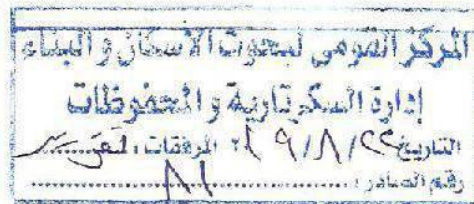 المركز القومى لبحوث الاسكان والبناء
إدارة السكرتارية والمحفوظات
التاريخ ٢٢/٨/٢٠١٩ المرفقات :
رقم الصادر : ٨١